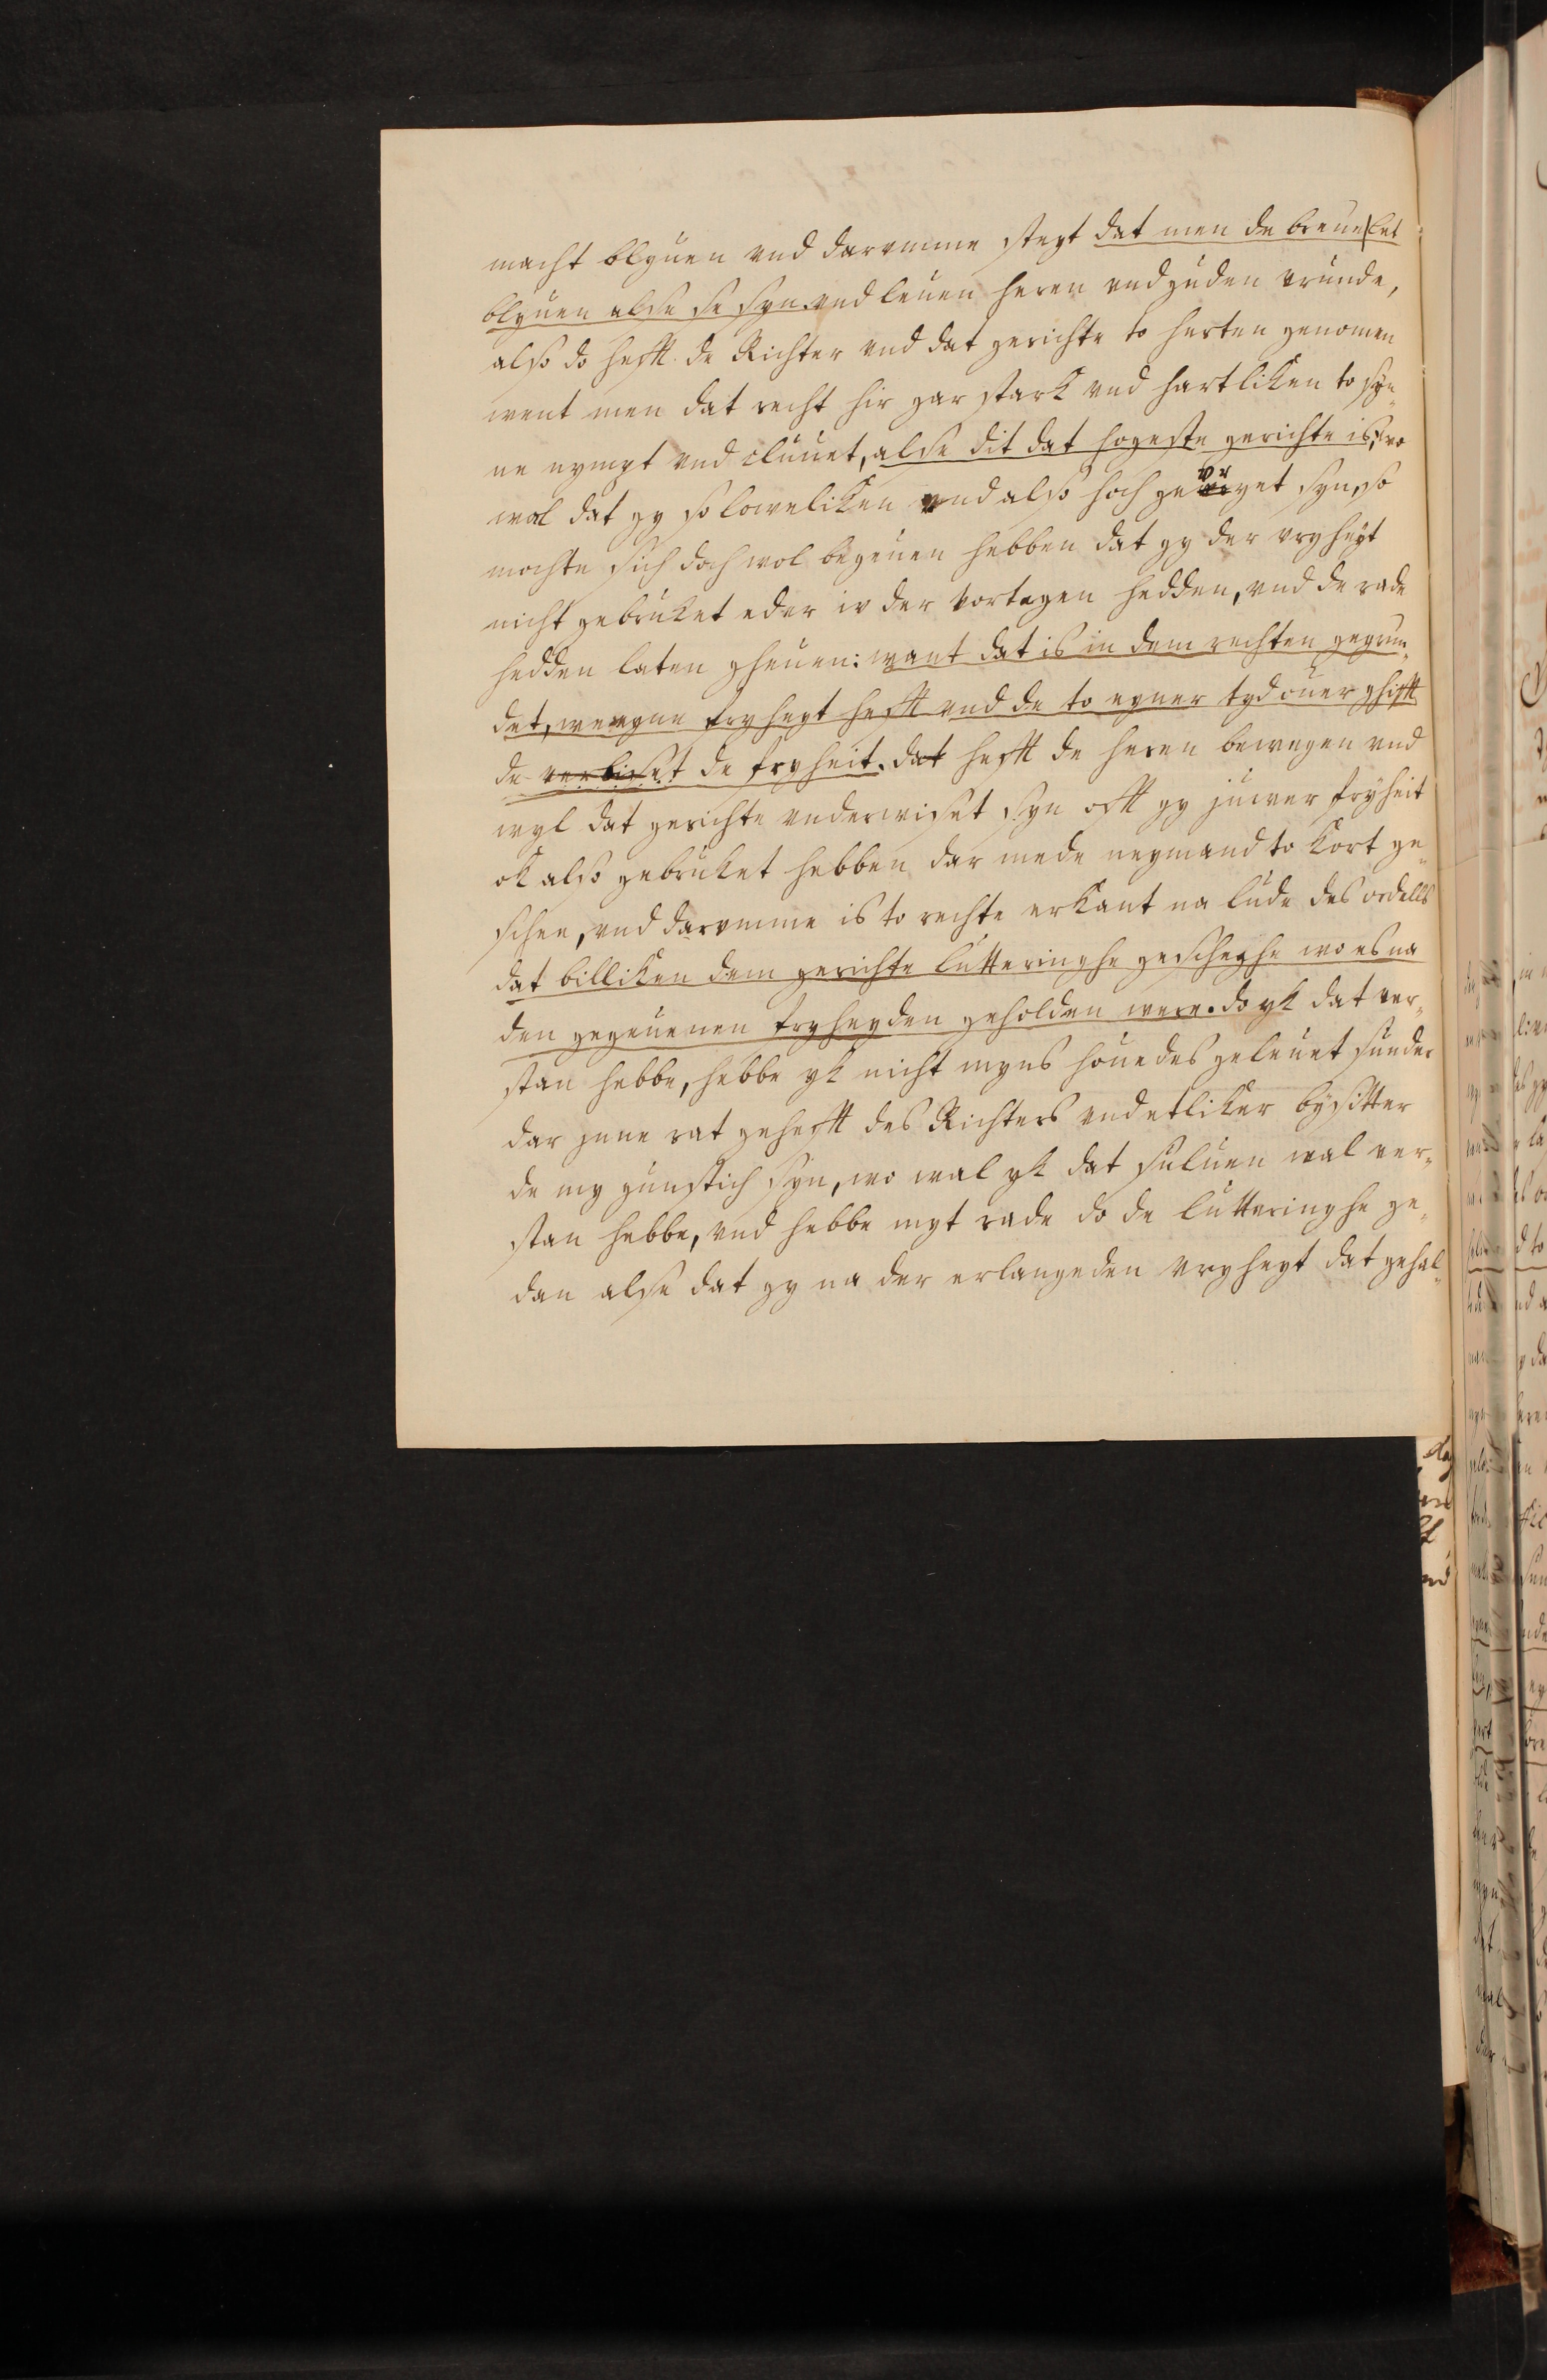 macht blyuen vnd darvmme steyt dat men de breue let
blyuen alse se syn. vnd leuen heren vnd guden vrunde,
also do hefft de Richter vnd dat gerichte to herten genomen
went men dat recht hir gar stark vnd hartliken to syn¬
ne nympt vnd cluuet, alse dit dat hogeste gerichte is, wo
wal dat gy so loweliken vnd also hoch gevryet syn, so
mochte sich doch wol begeuen hebben dat gy der vryheyt
nicht gebruket eder iv der vortegen hedden, vnd de rade
hedden laten gheuen: want dat is in dem rechten gegrun¬
det, we eyne fryheyt hefft vnd de to eyner tyd ouer ghifft
de verliset de fryheit. dat hefft de heren bewegen vnd
wyl dat gerichte underwiset syn offt gy juwer fryheit
ok also gebruket hebben dar mede neymand to kort ge¬
schee, vnd darvmme is to rechte erkant na lude des ordells
dat billiken dem gerichte lutteringhe gescheghe wo es na
den gegeuenen fryheyden geholden were. do yk dat ver¬
stan hebbe, hebbe yk nicht myns houedes geleuet sunder
dar jnne rat gehefft des Richters vnd etliker bysitter
de my gunstich syn, wo wal yk dat suluen wal ver¬
stan hebbe, vnd hebbe myt rade do de lutteringhe ge¬
dan alse dat gy na der erlangeden vryheyt dat gehal¬